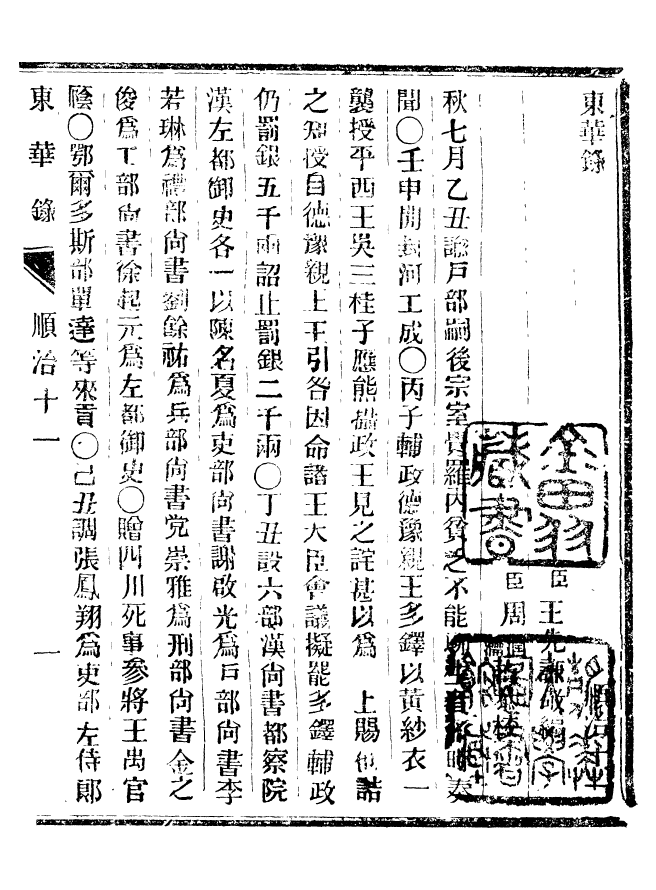 東華錄
臣王先謙敬編
臣周
秋七月乙丑諭戶部嗣後宗室覺羅內貧乏不能 奏
聞〇壬申開封河工成〇丙子輔政德豫親王多鐸以黃紗衣一
襲授平西王吳三桂子應熊攝政王見之詫甚以爲 上賜也詰
之知授自德豫親王王引咎因命諸王大臣會議擬罷多鐸輔政
仍罰銀五千兩詔止罰銀二千兩〇丁丑設六部漢尙書都察院
漢左都御史各一以陳名夏爲吏部尙書謝啟光爲戶部尙書李
若琳爲禮部尙書劉餘祐爲兵部尙書党崇雅爲刑部尙書金之
俊爲工部尙書徐起元爲左都御史〇贈四川死事參將王禹官
廕〇鄂爾多斯部單達等來貢〇己丑調張鳳翔爲吏部左侍郎
東華錄 順治十一 一